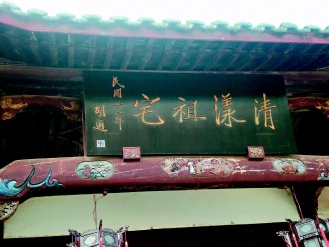 清漾祖宅
民國廿二年
胡適